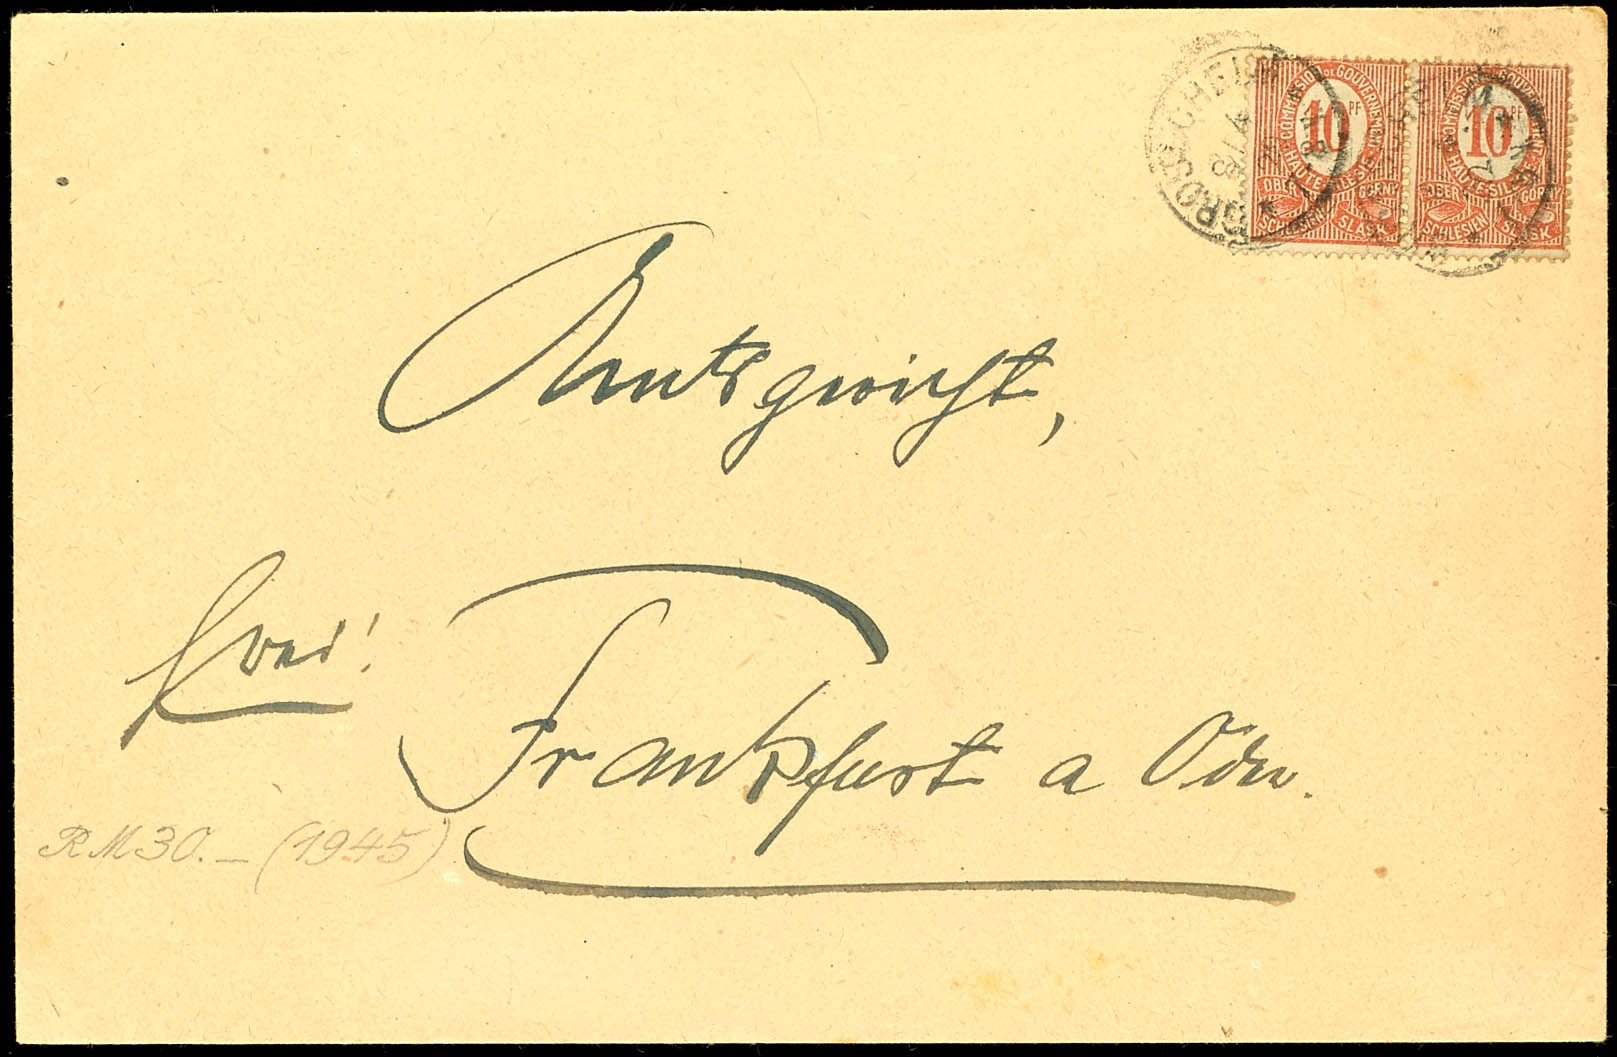 COMMISSION DE GOUVERNEMENT HAUTE SILESIE
10 PF
OBER SCHLESIEN GORNY SLASK
COMMISSION DE GOUVERNEMENT HAUTE SILESIE
10 PF
OBER SCHLESIEN GORNY SLASK
Amtsgericht,
frei!
Frankfurt a Oder.
RM 30.– (1945)